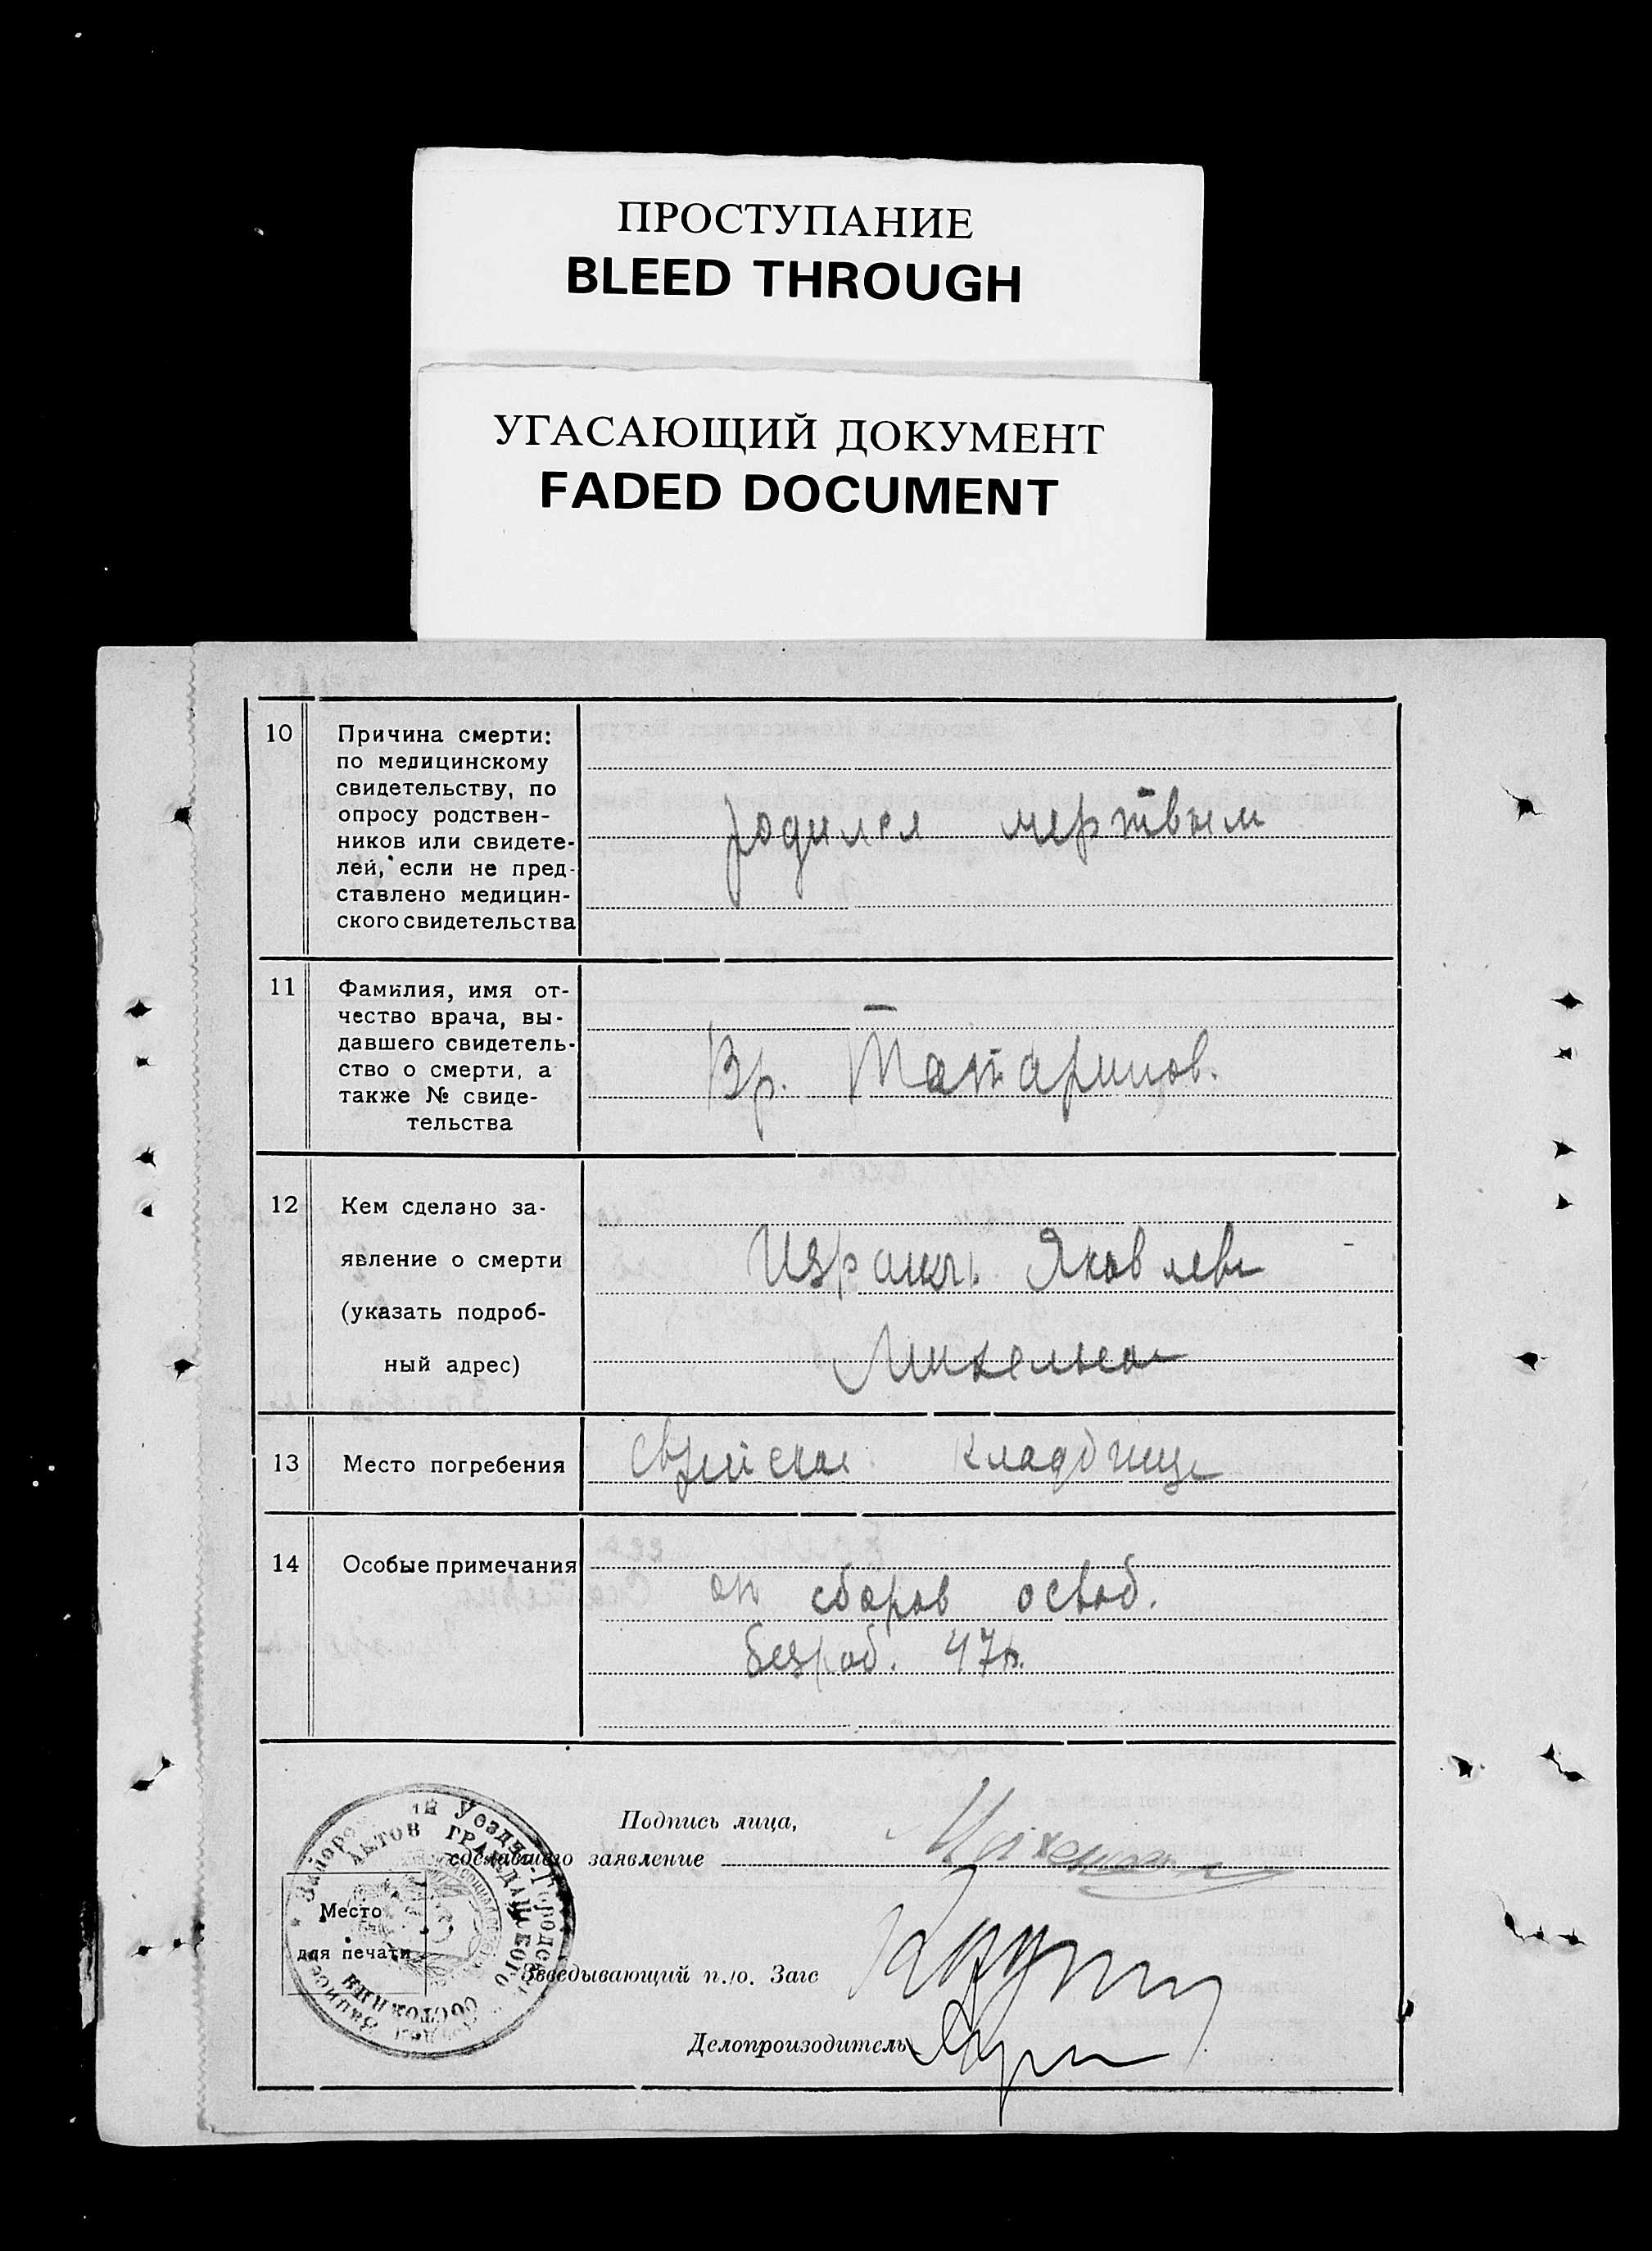 ПРОСТУПАНИЕ
BLEED THROUGH
УГАСАЮЩИЙ ДОКУМЕНТ
FADED DOCUMENT
10
Причина смерти:
по медицинскому
свидетельству, по
опросу родствен-
ников или свидете-
лей, если не пред-
ставлено медицин-
ского свидетельства
родился мертвым
11
Фамилия, имя от-
чество врача, вы-
давшего свидетель-
ство о смерти, а
также № свиде-
тельства
Вр. Татаринов.
12
Кем сделано за-
явление о смерти
(указать подроб-
ный адрес)
Яковлев
13
Место погребения
Еврейское кладбище
14
Особые примечания
от сборов освоб.
безраб. 47
Подпись лица,
сделавшего заявление
Место
для печати
Заведывающий п./о. Загс
Делопроизводитель
АКТОВ ГРАЖДАНСКОГО СОСТОЯНИЯ